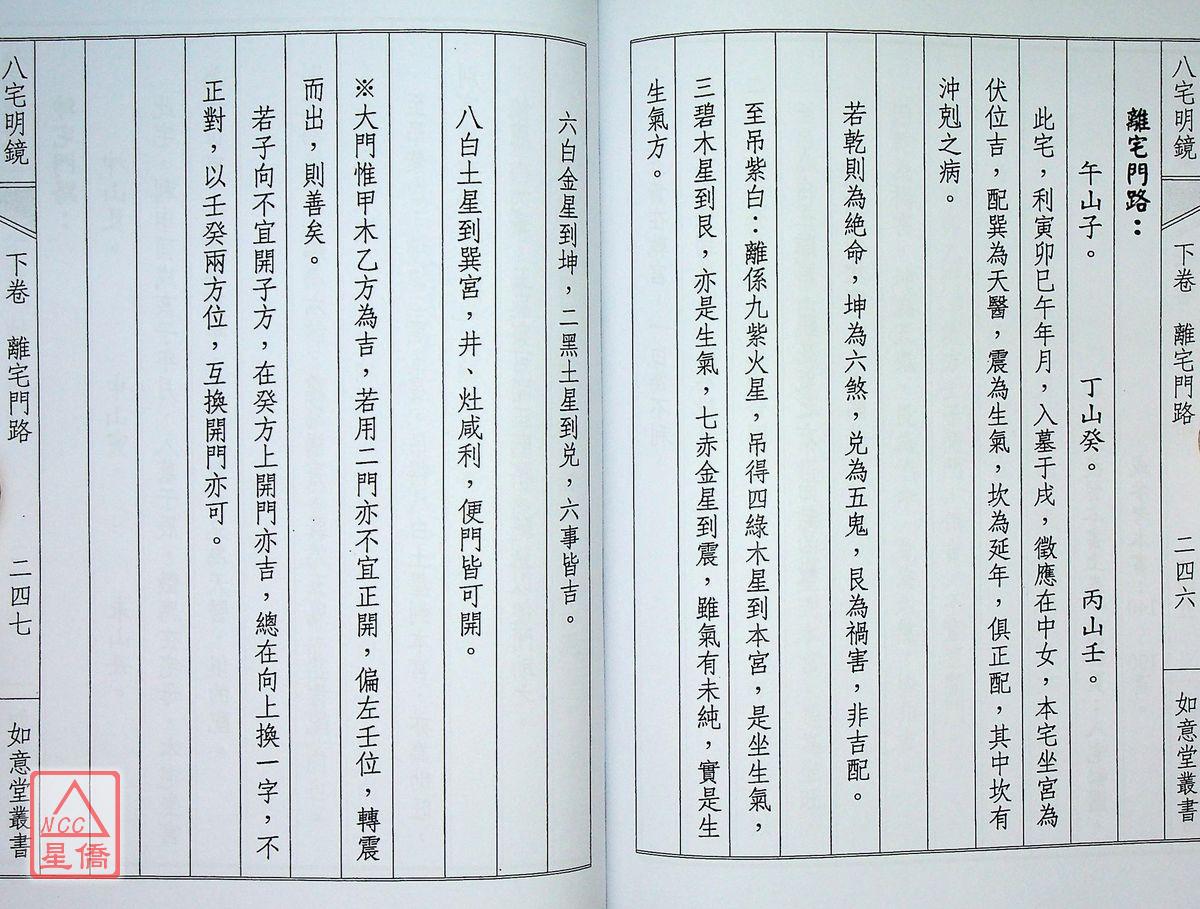 八宅明鏡 下卷 離宅門路 二四六 如意堂叢書
離宅門路：
午山子。 丁山癸。 丙山壬。
此宅，利寅卯巳午年月，入墓于戌，徵應在中女，本宅坐宮為
伏位吉，配巽為天醫，震為生氣，坎為延年，俱正配，其中坎有
沖剋之病。
若乾則為絶命，坤為六煞，兌為五鬼，艮為禍害，非吉配。
至吊紫白：離係九紫火星，吊得四綠木星到本宮，是坐生氣，
三碧木星到艮，亦是生氣，七赤金星到震，雖氣有未純，實是生
生氣方。
六白金星到坤，二黑土星到兌，六事皆吉。
八白土星到巽宮，井、灶咸利，便門皆可開。
※大門惟甲木乙方為吉，若用二門亦不宜正開，偏左壬位，轉震
而出，則善矣。
若子向不宜開子方，在癸方上開門亦吉，總在向上換一字，不
正對，以壬癸兩方位，互換開門亦可。
八宅明鏡 下卷 離宅門路 二四七 如意堂叢書
NCC
星僑